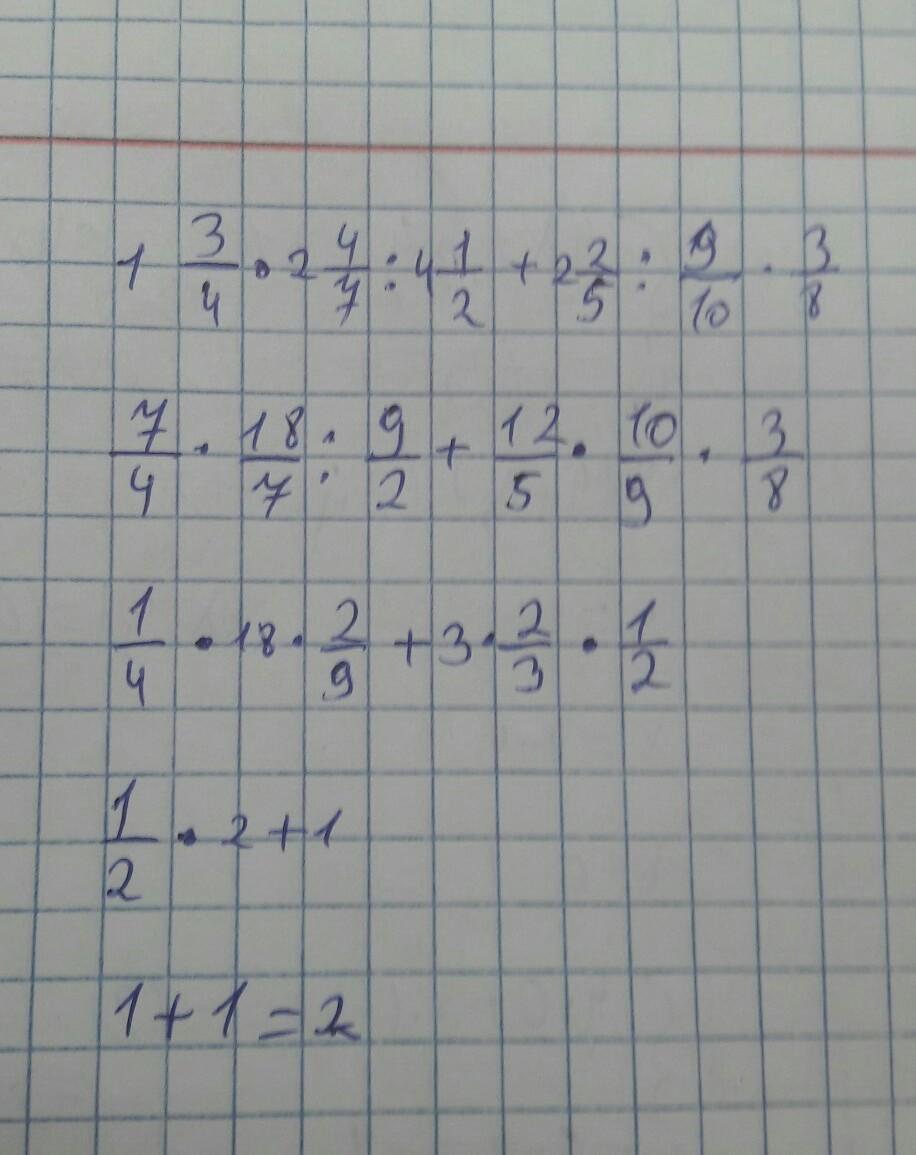 1 3/4 • 2 4/7 : 4 1/2 + 2 2/5 : 9/10 · 3/8
7/4 · 18/7 : 9/2 + 12/5 · 10/9 · 3/8
1/4 • 18 · 2/9 + 3 · 2/3 • 1/2
1/2 • 2 + 1
1 + 1 = 2